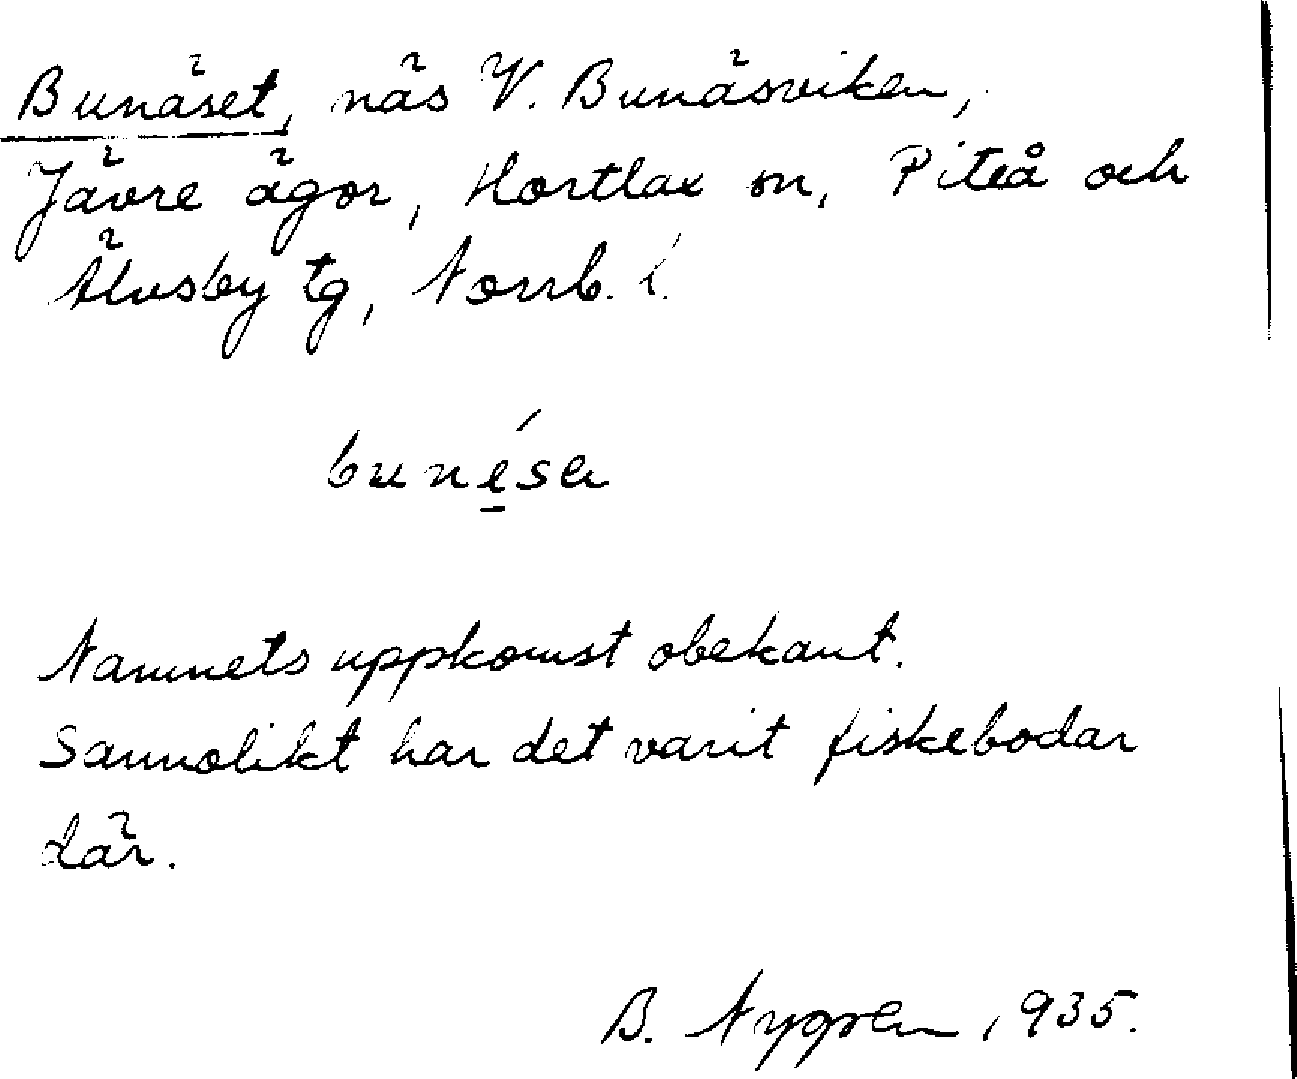 Bunäset, näs V. Bunäsviken,
Jävre ägor, Hortlax sn, Piteå och
Älvsby tg, Norrb. l.
bunésa
Namnets uppkomst obekant.
Sannolikt har det varit fiskebodar
där.
B. Nygren, 1935.